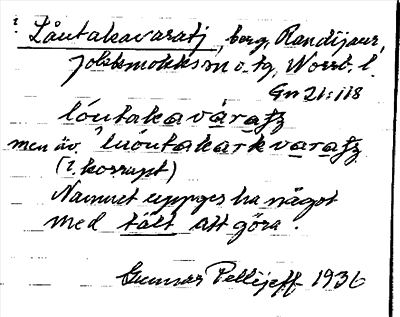 Låutakavaratj, berg, Randijaur,
Jokkmokks sn o. tg, Norrb. l.
Gn 21:118
lóutakavárat̜z
men äv. luóutakarkvarat̜z
(? korrupt)
Namnet uppges ha något
med tält att göra.
Gunnar Pellijeff 1936